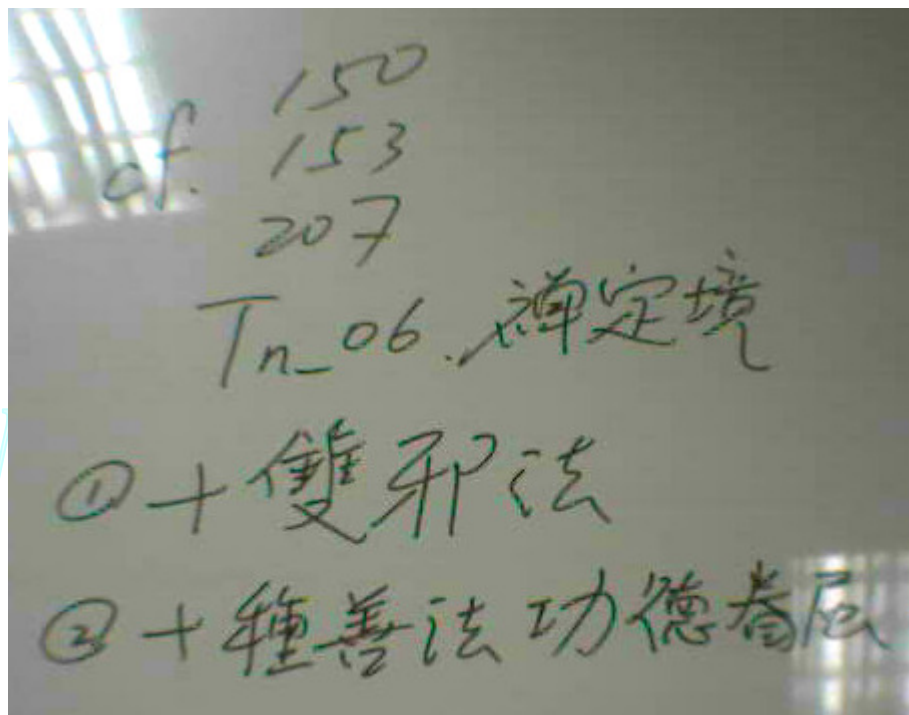 150
cf. 153
207
Tn_06. 禪定境
① + 雙邪法
② + 種善法功德眷屬